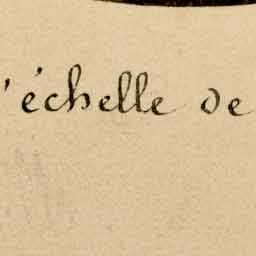 'échelle de